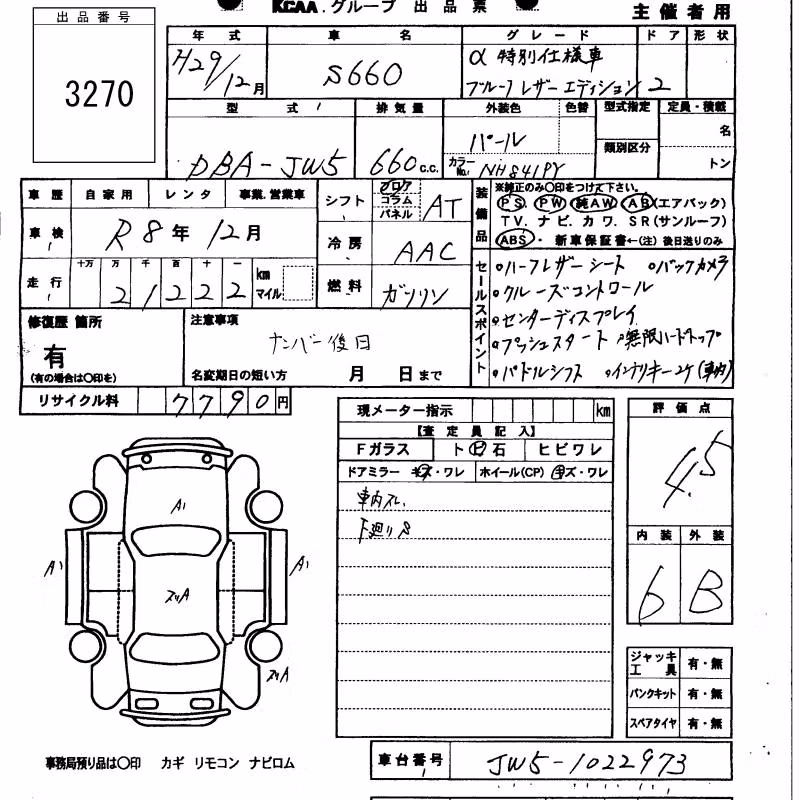 KCAA.グループ 出品票
主催者用
出品番号
3270
年式 車名 グレード ドア 形状
H29/12月 S660 α特別仕様車
ブルーノレザーエディション 2
型式 排気量 外装色 色替 型式指定 定員・積載
類別区分 名
トン
DBA-JW5 660c.c. パール
カラーNo. NH841PY
車歴 自家用 レンタ 事業.営業車
車検 R8年12月
走行 十万 万 千 百 十 一
21222 km
マイル
シフト フロア コラム パネル AT
冷房 AAC
燃料 ガソリン
装備品 ※純正のみ○印をつけて下さい。
PS. PW 純AW AB(エアバック)
TV. ナビ. カワ. SR(サンルーフ)
ABS・ 新車保証書←(注)後日送りのみ
セールスポイント
・ハーフレザーシート ・バックカメラ
・クルーズコントロール
・センターディスプレイ
・プッシュスタート ・無限ハードトップ
・パドルシフト ・インナーキー2ケ(車内)
修復歴 箇所
有
(有の場合は○印を)
注意事項
ナンバー後日
名変期日の短い方 月 日まで
リサイクル料 7790円
現メーター指示 km
【査定員記入】
Fガラス ト ビ 石 ヒビワレ
ドアミラー キズ・ワレ ホイール(CP) キズ・ワレ
車内スレ.
下廻りS
評価点
4.5
内装 外装
6 B
A1
A1 A1
ズレA
ズレA
ジャッキ 工具 有・無
パンクキット 有・無
スペアタイヤ 有・無
事務局預り品は○印 カギ リモコン ナビロム
車台番号 JW5-1022973